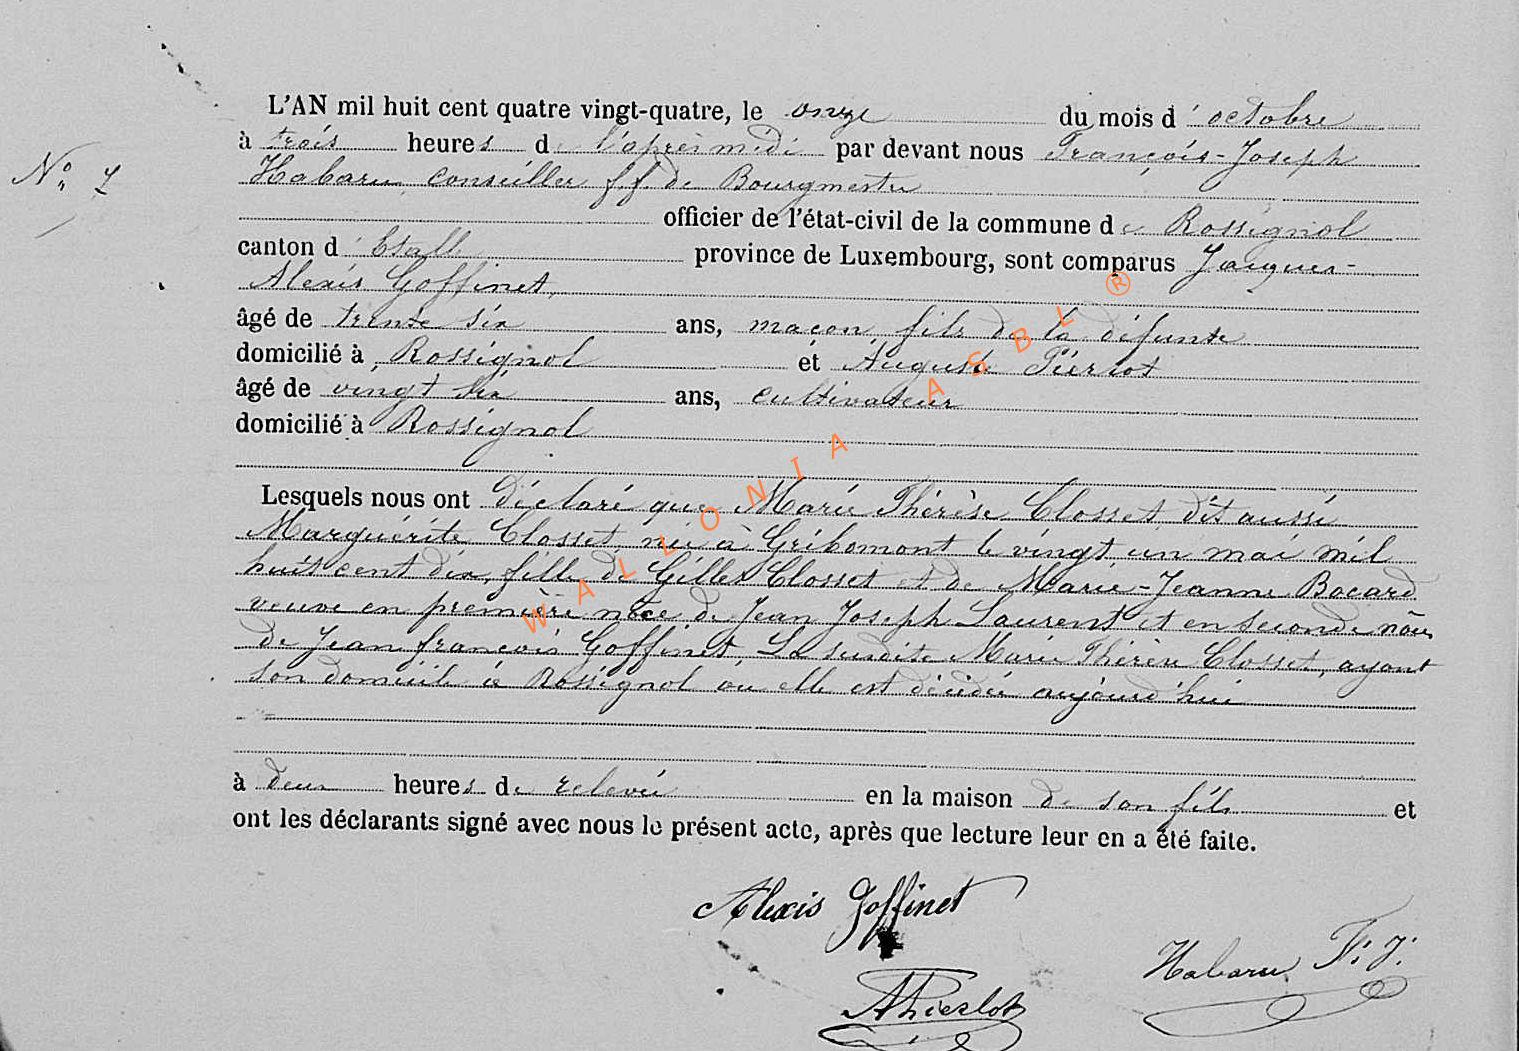 L'AN mil huit cent quatre vingt-quatre, le onze du mois d'octobre
No 7
à trois heures de l'après midi par devant nous François-Joseph
Habaru conseiller f.f. de Bourgmestre
officier de l'état-civil de la commune de Rossignol
canton d'Etalle province de Luxembourg, sont comparus Jacques-
Alexis Goffinet,
âgé de trente six ans, maçon fils de la défunte
domicilié à Rossignol et Auguste Pierlot
âgé de vingt six ans, cultivateur
domicilié à Rossignol
Lesquels nous ont déclaré que Marie Thérèse Closset dit aussi
Marguérite Closset, née à Gribomont le vingt un mai mil
huit cent dix, fille de Gilles Closset et de Marie-Jeanne Bocard
veuve en première noce de Jean Joseph Laurent et en seconde nôce
de Jean françois Goffinet, La susdite Marie Thérèse Closset, ayant
son domicile à Rossignol ou elle est décédée aujourd'hui
à deux heures de relevée en la maison de son fils et
ont les déclarants signé avec nous le présent acte, après que lecture leur en a été faite.
Alexis Goffinet
Habaru F.J.
APierlot
WALLONIA ASBL ®